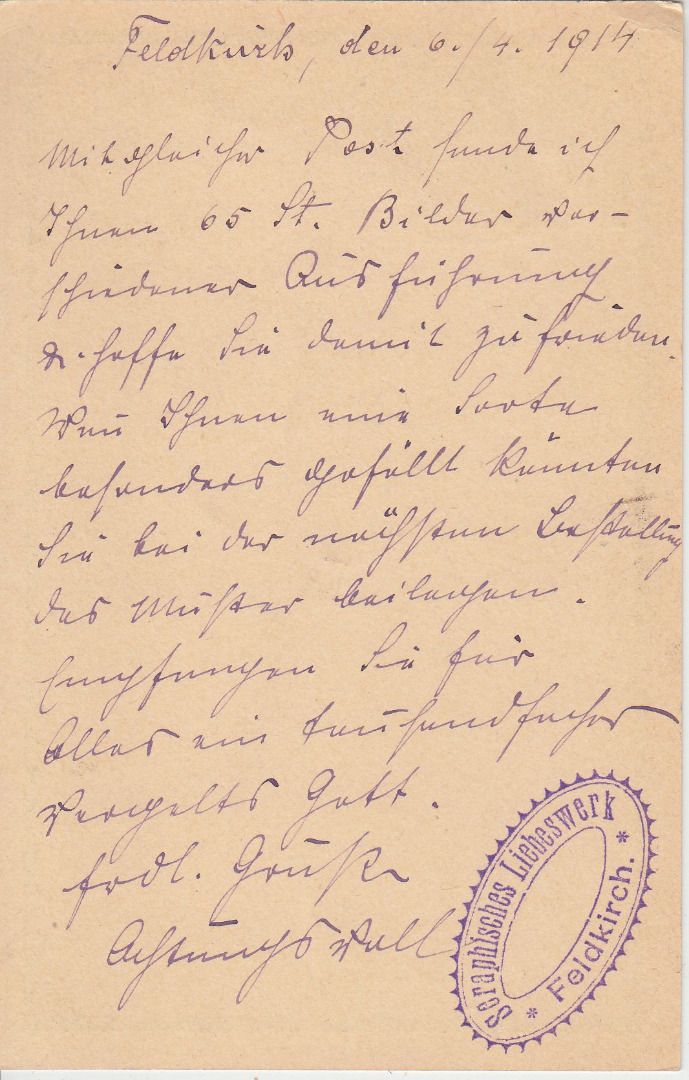 Feldkirch, den 6./4. 1914
Mit gleicher Post sende ich
Ihnen 65 St. Bilder ver-
schiedener Ausführung
& hoffe Sie damit zufrieden.
Wen̅ Ihnen eine Sorte
besonders gefällt könnten
Sie bei der nächsten Bestellung
das Muster beilegen.
Empfangen Sie für
Alles ein tausendfaches
Vergelts Gott.
frdl. Gruß
Achtungsvoll
Seraphisches Liebeswerk
* Feldkirch. *